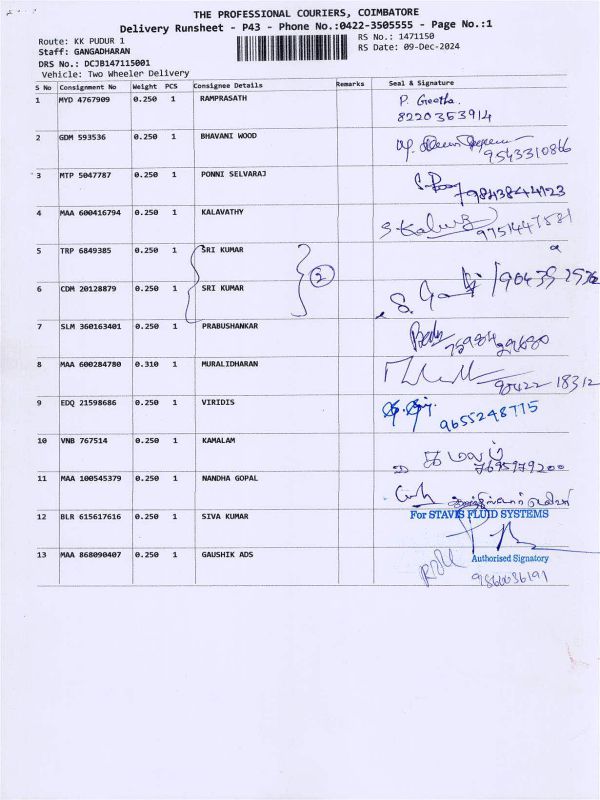 THE PROFESSIONAL COURIERS, COIMBATORE
Delivery Runsheet - P43 - Phone No.:0422-3505555 - Page No.:1
Route: KK PUDUR 1
Staff: GANGADHARAN
DRS No.: DCJB147115001
Vehicle: Two Wheeler Delivery
RS No.: 1471150
RS Date: 09-Dec-2024
S No Consignment No Weight PCS Consignee Details Remarks Seal & Signature
1 MYD 4767909 0.250 1 RAMPRASATH P. Geetha.
8220353914
2 GDM 593536 0.250 1 BHAVANI WOOD
9543310866
3 MTP 5047787 0.250 1 PONNI SELVARAJ
7984384 4123
4 MAA 600416794 0.250 1 KALAVATHY
9751447531
5 TRP 6849385 0.250 1 SRI KUMAR
2
6 CDM 20128879 0.250 1 SRI KUMAR
7 SLM 360163401 0.250 1 PRABUSHANKAR
8 MAA 600284780 0.310 1 MURALIDHARAN
90422 18312
9 EDQ 21598686 0.250 1 VIRIDIS
9655248775
10 VNB 767514 0.250 1 KAMALAM கமலம்
7695979200
11 MAA 100545379 0.250 1 NANDHA GOPAL
12 BLR 615617616 0.250 1 SIVA KUMAR For STAVIS FLUID SYSTEMS
Authorised Signatory
13 MAA 868090407 0.250 1 GAUSHIK ADS
9866636191